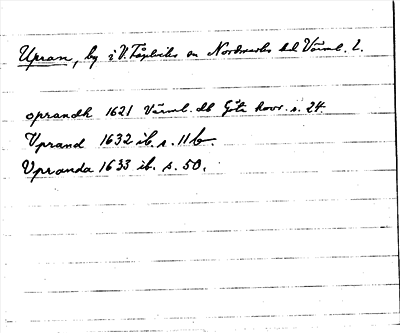 Upran, by i V. Fågelviks sn Nordmarks hd Värml. l.
oprandh 1621 Värml. db Göta hovr. s. 24.
Vprand 1632 ib. s. 11 b.
Vpranda 1633 ib. s. 50.